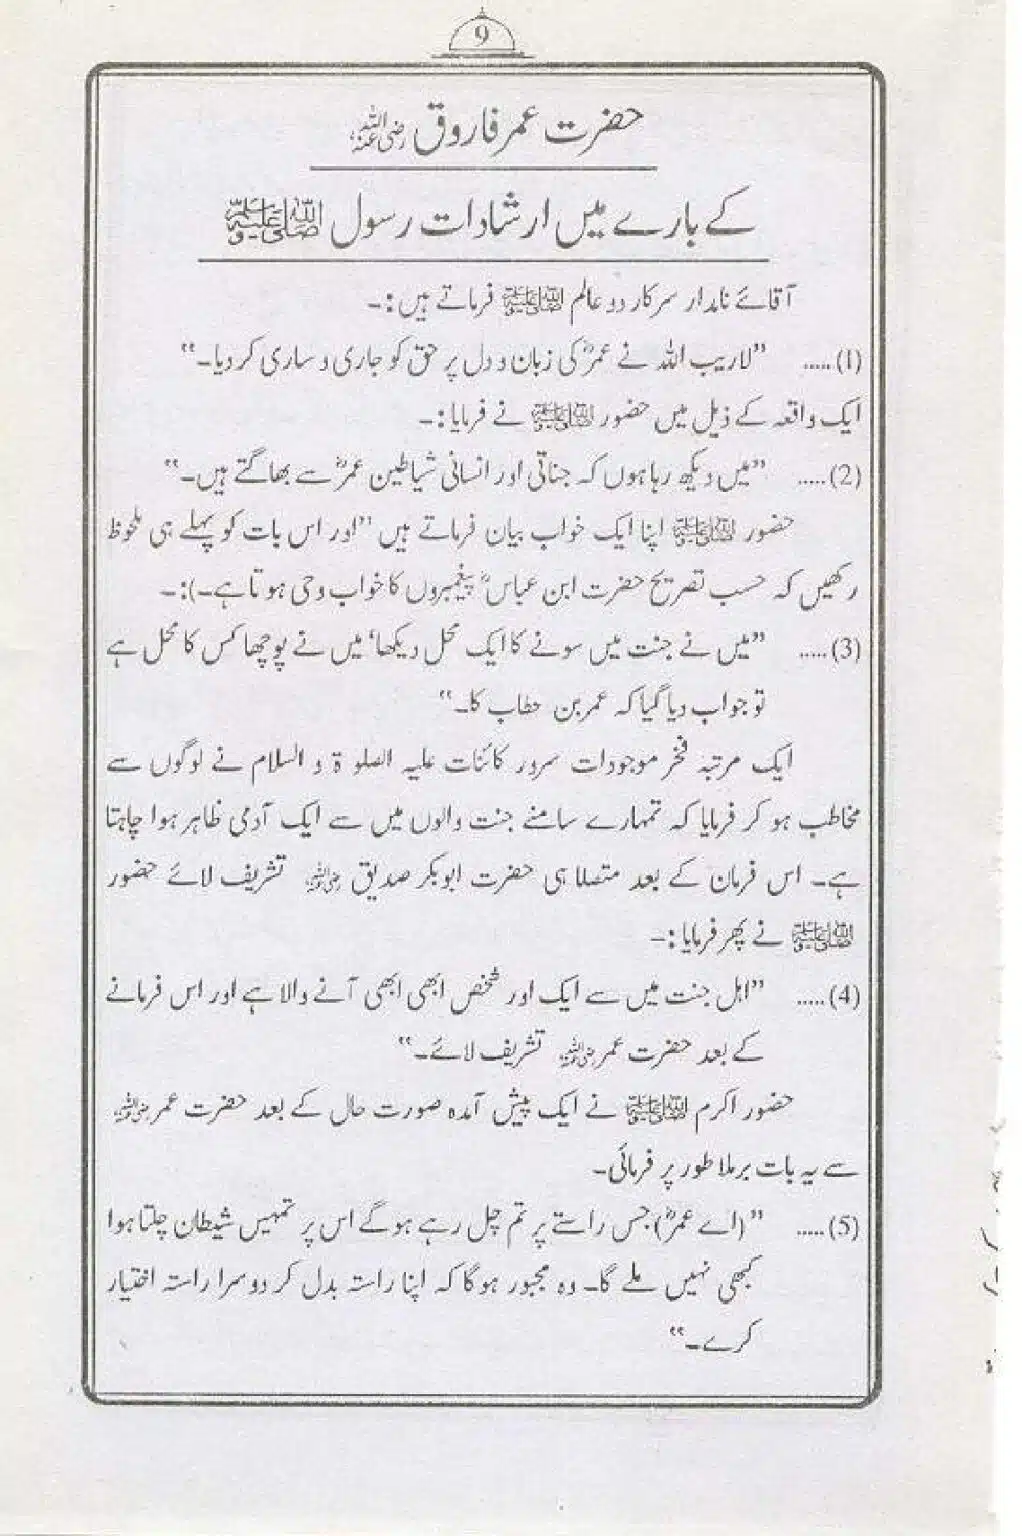 9
حضرت عمر فاروق رضی اللہ عنہ
کے بارے میں ارشادات رسول ﷺ
آقائے نامدار سرکار دو عالم ﷺ فرماتے ہیں:۔
(1)..... ”لاریب اللہ نے عمرؓ کی زبان و دل پر حق کو جاری و ساری کر دیا۔“
ایک واقعہ کے ذیل میں حضور ﷺ نے فرمایا:۔
(2)..... ”میں دیکھ رہا ہوں کہ جناتی اور انسانی شیاطین عمرؓ سے بھاگتے ہیں۔“
حضور ﷺ اپنا ایک خواب بیان فرماتے ہیں ”اور اس بات کو پہلے ہی ملحوظ
رکھیں کہ حسب تصریح حضرت ابن عباسؓ پیغمبروں کا خواب وحی ہوتا ہے۔):۔
(3)..... ”میں نے جنت میں سونے کا ایک محل دیکھا‘ میں نے پوچھا کس کا محل ہے
تو جواب دیا گیا کہ عمر بن خطاب کا۔“
ایک مرتبہ فخر موجودات سرور کائنات علیہ الصلوۃ و السلام نے لوگوں سے
مخاطب ہو کر فرمایا کہ تمہارے سامنے جنت والوں میں سے ایک آدمی ظاہر ہوا چاہتا
ہے۔ اس فرمان کے بعد متصلا ہی حضرت ابوبکر صدیق رضی اللہ عنہ تشریف لائے حضور
ﷺ نے پھر فرمایا:۔
(4)..... ”اہل جنت میں سے ایک اور شخص ابھی ابھی آنے والا ہے اور اس فرمانے
کے بعد حضرت عمر رضی اللہ عنہ تشریف لائے۔“
حضور اکرم ﷺ نے ایک پیش آمدہ صورت حال کے بعد حضرت عمر رضی اللہ عنہ
سے یہ بات برملا طور پر فرمائی۔
(5)..... ”(اے عمرؓ) جس راستے پر تم چل رہے ہوگے اس پر تمہیں شیطان چلتا ہوا
کبھی نہیں ملے گا۔ وہ مجبور ہوگا کہ اپنا راستہ بدل کر دوسرا راستہ اختیار
کرے۔“